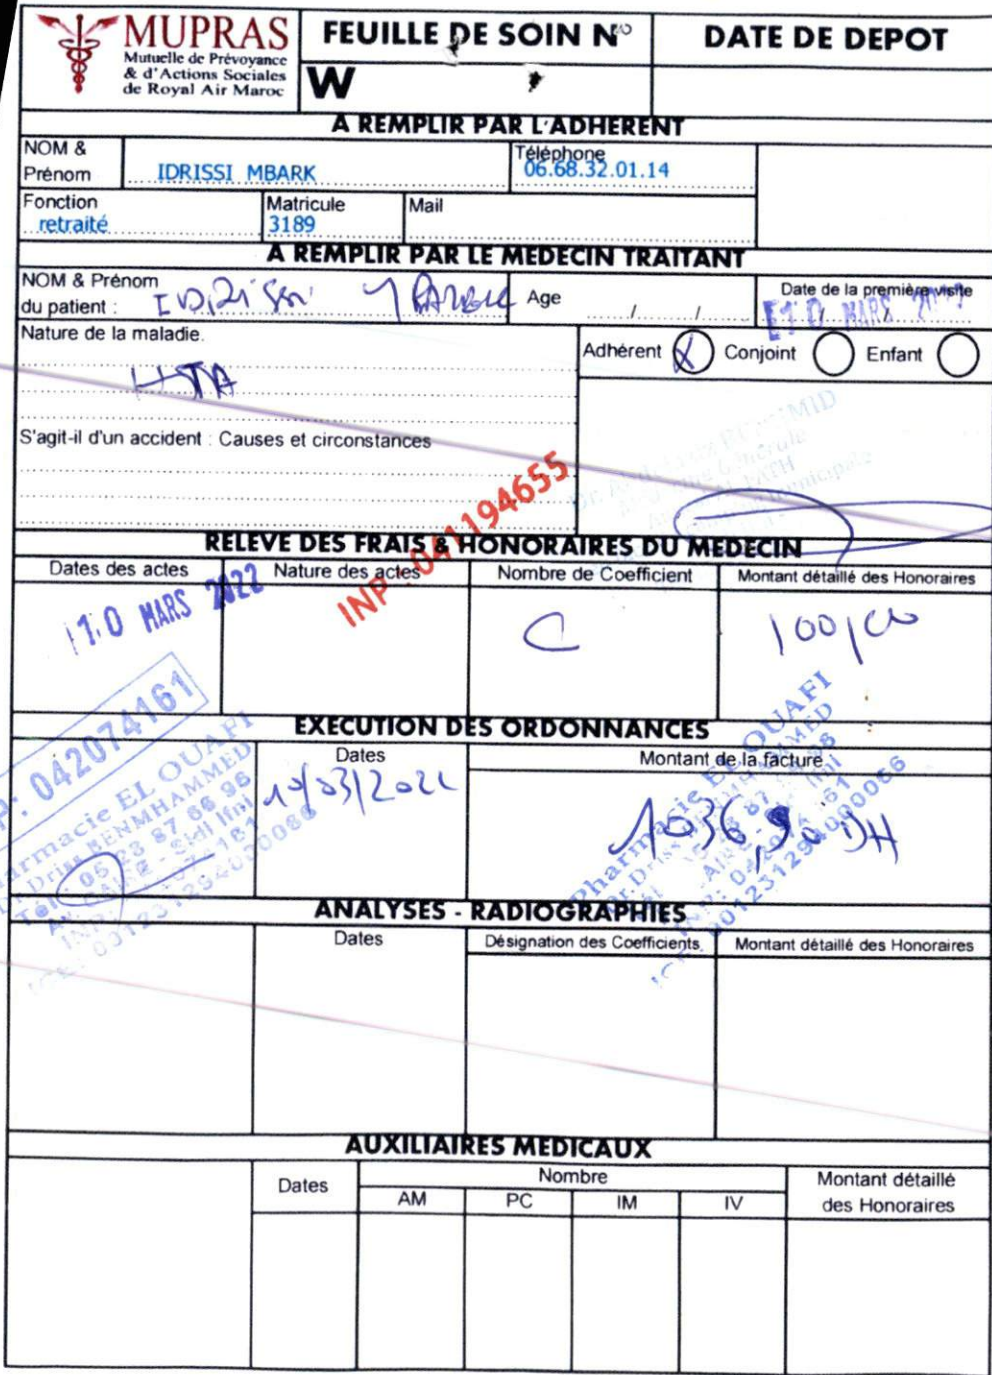 MUPRAS
Mutuelle de Prévoyance
& d'Actions Sociales
de Royal Air Maroc
FEUILLE DE SOIN N°
W
DATE DE DEPOT
A REMPLIR PAR L'ADHERENT
NOM &
Prénom
IDRISSI MBARK
Téléphone
06.68.32.01.14
Fonction
retraité
Matricule
3189
Mail
A REMPLIR PAR LE MEDECIN TRAITANT
NOM & Prénom
du patient :
Age
/ /
Date de la première visite
10 MARS
Nature de la maladie.
HTA
Adhérent X Conjoint Enfant
S'agit-il d'un accident : Causes et circonstances
INP: 041194655
RELEVE DES FRAIS & HONORAIRES DU MEDECIN
Dates des actes
Nature des actes
Nombre de Coefficient
Montant détaillé des Honoraires
10 MARS 2022
C
100,00
EXECUTION DES ORDONNANCES
Dates
Montant de la facture
10/03/2022
1036,90 DH
: 042074161
Pharmacie EL OUAFI
Dr. Driss BENMHAMMED
Pharmacie EL OUAFI
ANALYSES - RADIOGRAPHIES
Dates
Désignation des Coefficients
Montant détaillé des Honoraires
AUXILIAIRES MEDICAUX
Dates
Nombre
AM
PC
IM
IV
Montant détaillé
des Honoraires